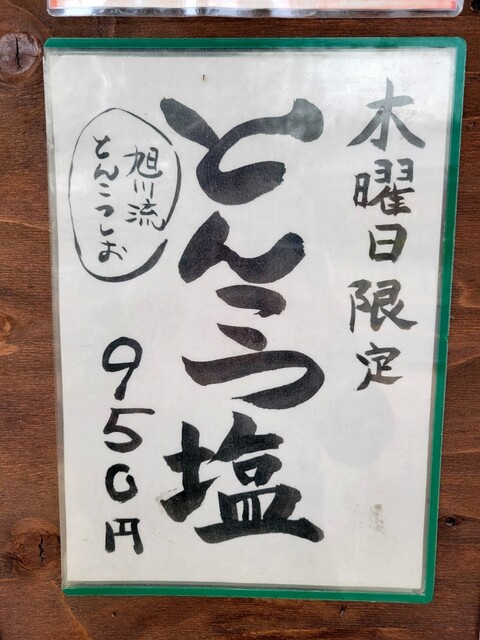 木曜日限定
とんこつ塩
旭川流
とんこつしお
950円